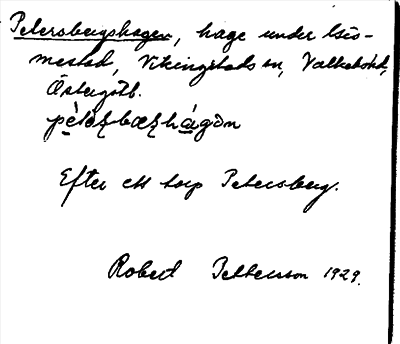 Petersbergshagen, hage under Ism-
nestad, Vikingstads sn, Valkebo hd,
Östergötl.
Efter ett torp Petersberg.
Robert Pettersson 1929.